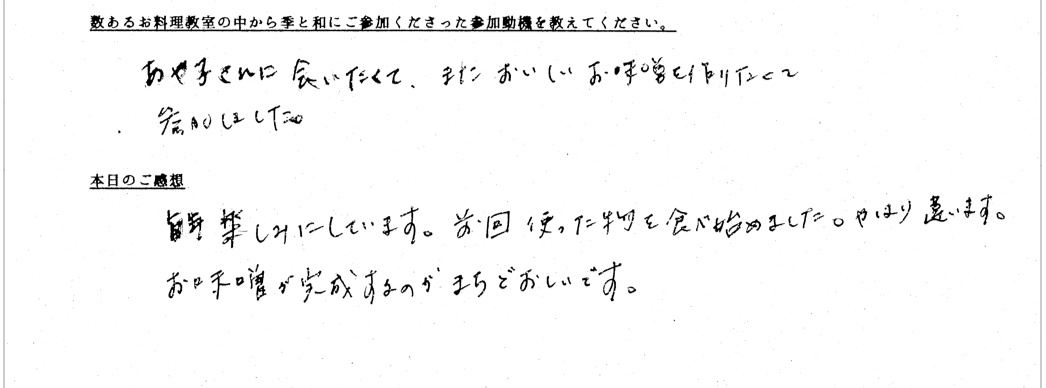 数あるお料理教室の中から季と和にご参加くださった参加動機を教えてください。
あや子さんに会いたくて、またおいしいお味噌を作りたくて
参加しました。
本日のご感想
毎年楽しみにしています。前回使った物を食べ始めました。やはり違います。
お味噌が完成するのがまちどおしいです。